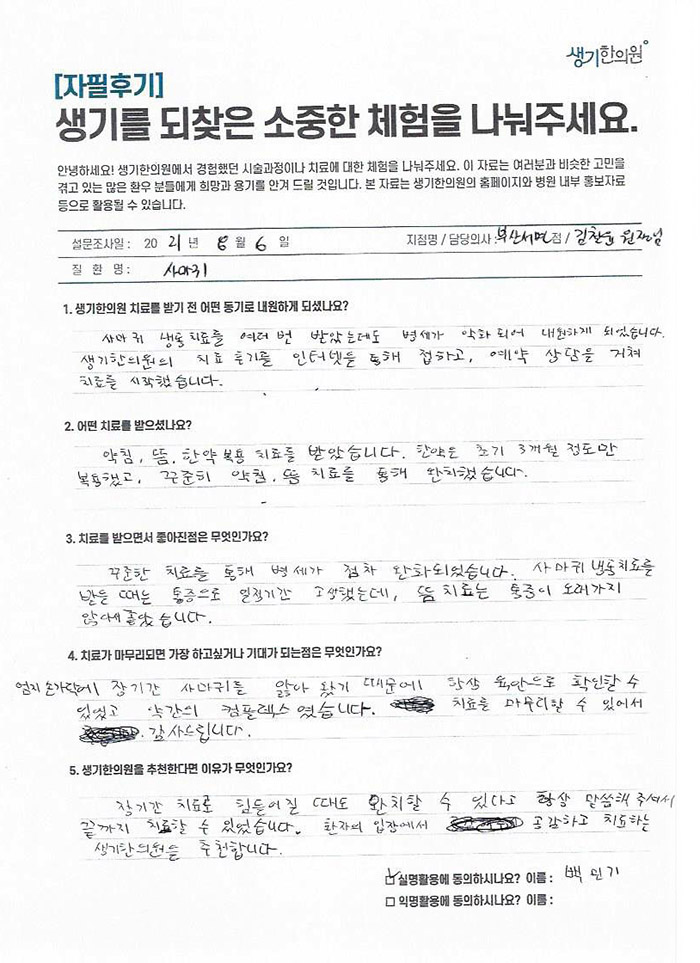 생기한의원
[자필후기]
생기를 되찾은 소중한 체험을 나눠주세요.
안녕하세요! 생기한의원에서 경험했던 시술과정이나 치료에 대한 체험을 나눠주세요. 이 자료는 여러분과 비슷한 고민을
겪고 있는 많은 환우 분들에게 희망과 용기를 안겨 드릴 것입니다. 본 자료는 생기한의원의 홈페이지와 병원 내부 홍보자료
등으로 활용될 수 있습니다.
설문조사일 : 20 21 년 8 월 6 일 지점명 / 담당의사 : 부산서면점 / 김찬윤 원장님
질 환 명 : 사마귀
1. 생기한의원 치료를 받기 전 어떤 동기로 내원하게 되셨나요?
사마귀 냉동치료를 여러 번 받았는데도 병세가 악화 되어 내원하게 되었습니다.
생기한의원의 치료 후기를 인터넷을 통해 접하고, 예약 상담을 거쳐
치료를 시작했습니다.
2. 어떤 치료를 받으셨나요?
약침, 뜸, 한약 복용 치료를 받았습니다. 한약은 초기 3개월 정도만
복용했고, 꾸준히 약침, 뜸 치료를 통해 완치했습니다.
3. 치료를 받으면서 좋아진점은 무엇인가요?
꾸준한 치료를 통해 병세가 점차 완화되었습니다. 사마귀 냉동치료를
받을 때는 통증으로 일정기간 고생했는데, 뜸 치료는 통증이 오래가지
않아서 좋았습니다.
4. 치료가 마무리되면 가장 하고싶거나 기대가 되는점은 무엇인가요?
엄지 손가락에 장기간 사마귀를 앓아 왔기 때문에 항상 육안으로 확인할 수
있었고 약간의 컴플렉스 였습니다. 치료를 마무리할 수 있어서
감사드립니다.
5. 생기한의원을 추천한다면 이유가 무엇인가요?
장기간 치료로 힘들어질 때도 완치할 수 있다고 항상 말씀해 주셔서
끝까지 치료할 수 있었습니다. 환자의 입장에서 공감하고 치료하는
생기한의원을 추천합니다.
실명활용에 동의하시나요? 이름 : 백민기
익명활용에 동의하시나요? 이름 :